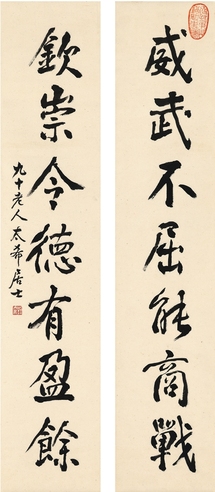 威武不屈能商戰
欽崇令德有盈餘
九十老人太希居士